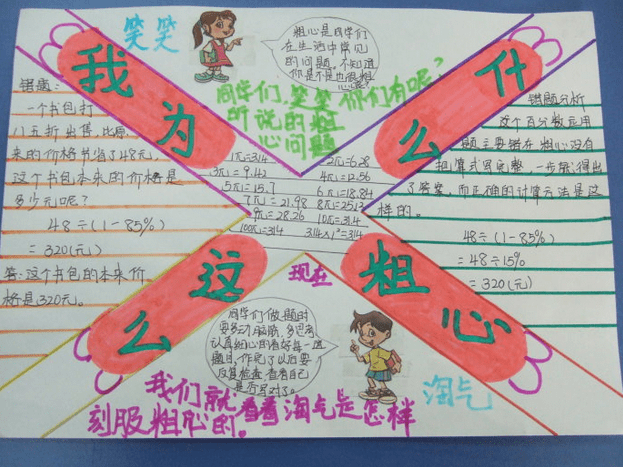 我为什么这么粗心
笑笑
粗心是同学们
在生活中常见
的问题,不知道
你是不是也很粗
心呢?
同学们,笑笑 你们有呢?
所说的粗
心问题
错题:
一个书包打
八五折出售,比原
来的价格节省了48元,
这个书包本来的价格是
多少元呢?
48÷(1-85%)
=320(元)
答:这个书包的本来价
格是320元。
1π=3.14 2π=6.28
3π=9.42 4π=12.56
5π=15.7 6π=18.84
7π=21.98 8π=25.12
9π=28.26 10π=31.4
100π=314 3.14×1²=3.14
错题分析
这个百分数运用
题主要错在粗心没有
把算式写完整,一步就得出
了答案,而正确的计算方法是这
样的。
48÷(1-85%)
=48÷15%
=320(元)
现在
同学们做题时
要多动脑筋,
认真细心的看好每一道
题目,作完了以后要
反复检查,看看自己
是否写对了。
淘气
我们就看看淘气是怎样
刻服粗心的。